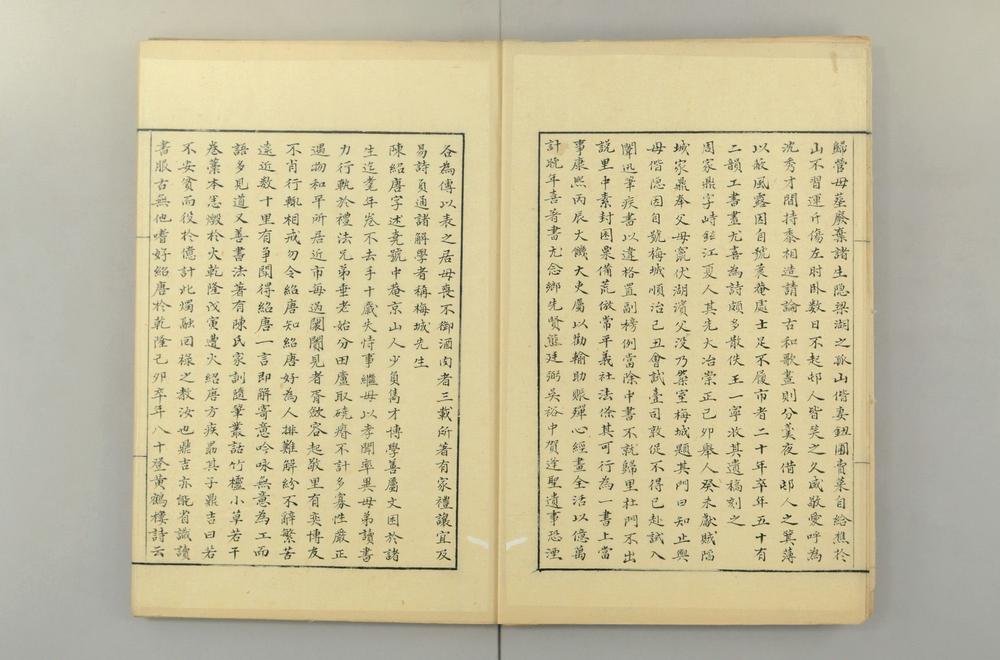 歸營母葬廢棄諸生隱梁湖之孤山偕妻鈕圃賣菜自給樵於
山不習運斤傷左肘臥數日不起邨人皆笑之久咸敬愛呼為
沈秀才間持黍相造請論古和歌晝則分羹夜借邨人之箕薄
以蔽風露因自號蓑菴處士足不履市者二十年卒年五十有
二韻工書畫尤喜為詩頗多散佚王一寧收其遺稿刻之
周家鼎字峙鉉江夏人其先大冶崇正己卯舉人癸未獻賊陷
城家鼎奉父母竄伏湖濱父沒乃築室梅城題其門曰知止與
母偕隱因自號梅城順治己丑會試臺司敦促不得已赴試入
闈迅筆疾書以違格置副榜例當除中書不就歸里杜門不出
說里中素封困粟備荒倣常平義社法條其可行為一書上當
事康熙丙辰大饑大吏屬以勸輸助賑殫心經畫全活以億萬
計晚年喜著書尤念鄉先賢熊廷弼吳裕中賀逢聖遺事恐湮
各為傳以表之居母喪不御酒肉者三載所著有家禮讓宜及
易詩貞通諸解學者稱梅城先生
陳紹唐字述堯號中菴京山人少負雋才博學善屬文困於諸
生迄耄年卷不去手十歲失恃事繼母以孝聞率異母弟讀書
力行軌於禮法兄弟垂老始分田廬取磽瘠不計多寡性嚴正
遇物和早所居近市毎過闤闠見者胥斂容起敬里有奕博友
不肖行輒相戒勿令紹唐知紹唐好為人排難解紛不辭繁苦
遠近數十里有爭鬩得紹唐一言即解寄意吟咏無意為工而
語多見道又善書法著有陳氏家訓隨筆叢話竹櫨小草若干
卷藁本悉燬於火乾隆戊寅遭火紹唐方疾勗其子鼎吉曰若
不安貧而役於億計此燭融回祿之教汝也鼎吉亦能省識讀
書服古無他嗜好紹唐於乾隆己卯卒年八十登黃鶴樓詩云